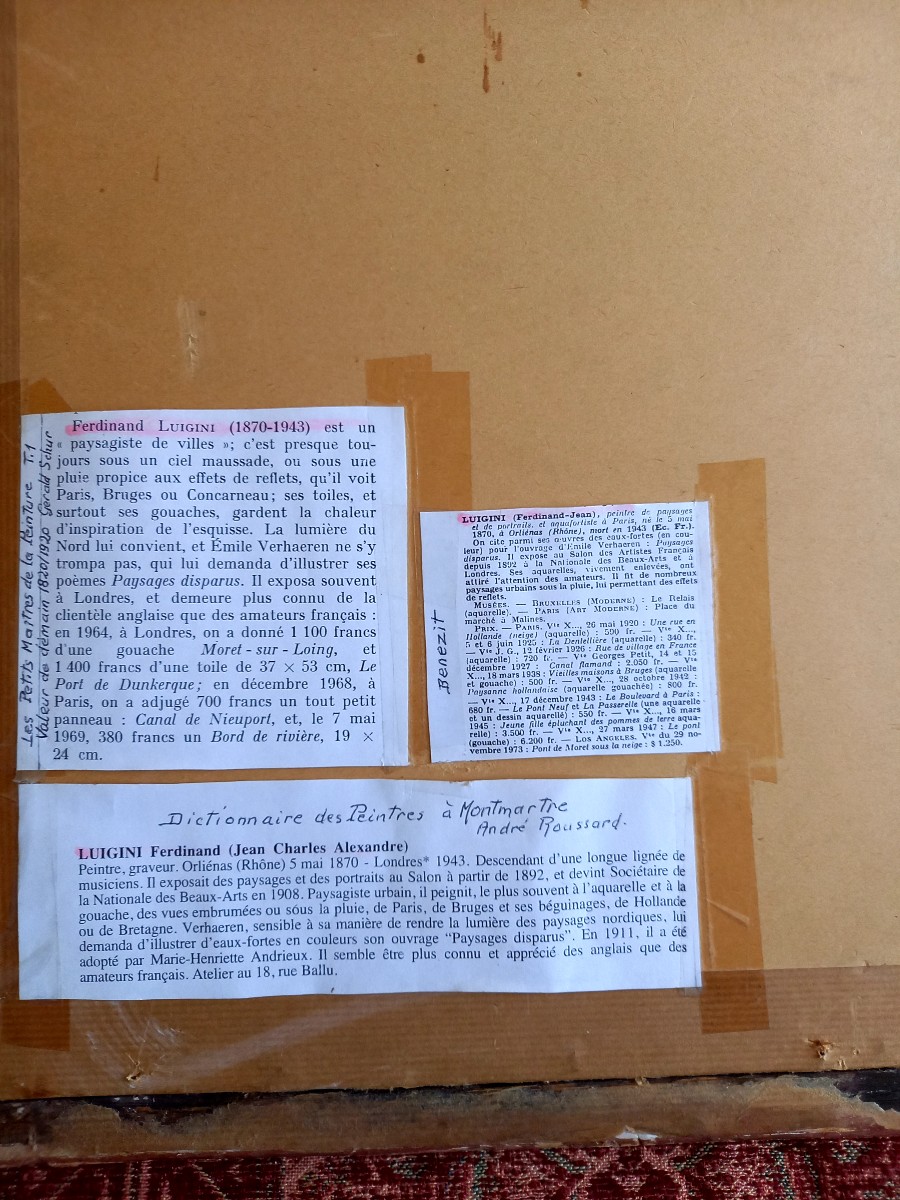 Les Petits Maîtres de la Peinture T.1
Valeur de demain 1820/1920 Gerald Schur
Ferdinand LUIGINI (1870-1943) est un
« paysagiste de villes »; c'est presque tou-
jours sous un ciel maussade, ou sous une
pluie propice aux effets de reflets, qu'il voit
Paris, Bruges ou Concarneau; ses toiles, et
surtout ses gouaches, gardent la chaleur
d'inspiration de l'esquisse. La lumière du
Nord lui convient, et Émile Verhaeren ne s'y
trompa pas, qui lui demanda d'illustrer ses
poèmes Paysages disparus. Il exposa souvent
à Londres, et demeure plus connu de la
clientèle anglaise que des amateurs français :
en 1964, à Londres, on a donné 1 100 francs
d'une gouache Moret-sur-Loing, et
1 400 francs d'une toile de 37 × 53 cm, Le
Port de Dunkerque; en décembre 1968, à
Paris, on a adjugé 700 francs un tout petit
panneau : Canal de Nieuport, et, le 7 mai
1969, 380 francs un Bord de rivière, 19 ×
24 cm.
Benezit
LUIGINI (Ferdinand-Jean), peintre de paysages
et de portraits, et aquafortiste à Paris, né le 5 mai
1870, à Orliénas (Rhône), mort en 1943 (Ec. Fr.).
On cite parmi ses œuvres des eaux-fortes (en cou-
leur) pour l'ouvrage d'Émile Verhaeren : Paysages
disparus. Il expose au Salon des Artistes Français
depuis 1892 à la Nationale des Beaux-Arts et à
Londres. Ses aquarelles, vivement enlevées, ont
attiré l'attention des amateurs. Il fit de nombreux
paysages urbains sous la pluie, lui permettant des effets
de reflets.
MUSÉES. — BRUXELLES (MODERNE) : Le Relais
(aquarelle). — PARIS (ART MODERNE) : Place du
marché à Malines.
PRIX. — PARIS. Vte X..., 26 mai 1920 : Une rue en
Hollande (neige) (aquarelle) : 590 fr. — Vte X...,
5 et 6 juin 1925 : La Dentellière (aquarelle) : 340 fr.
— Vte J. G., 12 février 1926 : Rue de village en France
(aquarelle) : 720 fr. — Vte Georges Petit, 14 et 15
décembre 1927 : Canal flamand : 2.050 fr. — Vte
X..., 18 mars 1938 : Vieilles maisons à Bruges (aquarelle
et gouache) : 500 fr. — Vte X..., 28 octobre 1942 :
Paysanne hollandaise (aquarelle gouachée) : 800 fr.
— Vte X..., 17 décembre 1943 : Le Boulevard à Paris :
680 fr. — Le Pont Neuf et La Passerelle (une aquarelle
et un dessin aquarellé) : 550 fr. — Vte X..., 16 mars
1945 : Jeune fille épluchant des pommes de terre aqua-
relle) : 3.500 fr. — Vte X..., 27 mars 1947 : Le pont
(gouache) : 6.200 fr. — LOS ANGELES. Vte du 29 no-
vembre 1973 : Pont de Moret sous la neige : $ 1.250.
Dictionnaire des Peintres à Montmartre
André Roussard.
LUIGINI Ferdinand (Jean Charles Alexandre)
Peintre, graveur. Orliénas (Rhône) 5 mai 1870 - Londres* 1943. Descendant d'une longue lignée de
musiciens. Il exposait des paysages et des portraits au Salon à partir de 1892, et devint Sociétaire de
la Nationale des Beaux-Arts en 1908. Paysagiste urbain, il peignit, le plus souvent à l'aquarelle et à la
gouache, des vues embrumées ou sous la pluie, de Paris, de Bruges et ses béguinages, de Hollande
ou de Bretagne. Verhaeren, sensible à sa manière de rendre la lumière des paysages nordiques, lui
demanda d'illustrer d'eaux-fortes en couleurs son ouvrage "Paysages disparus". En 1911, il a été
adopté par Marie-Henriette Andrieux. Il semble être plus connu et apprécié des anglais que des
amateurs français. Atelier au 18, rue Ballu.